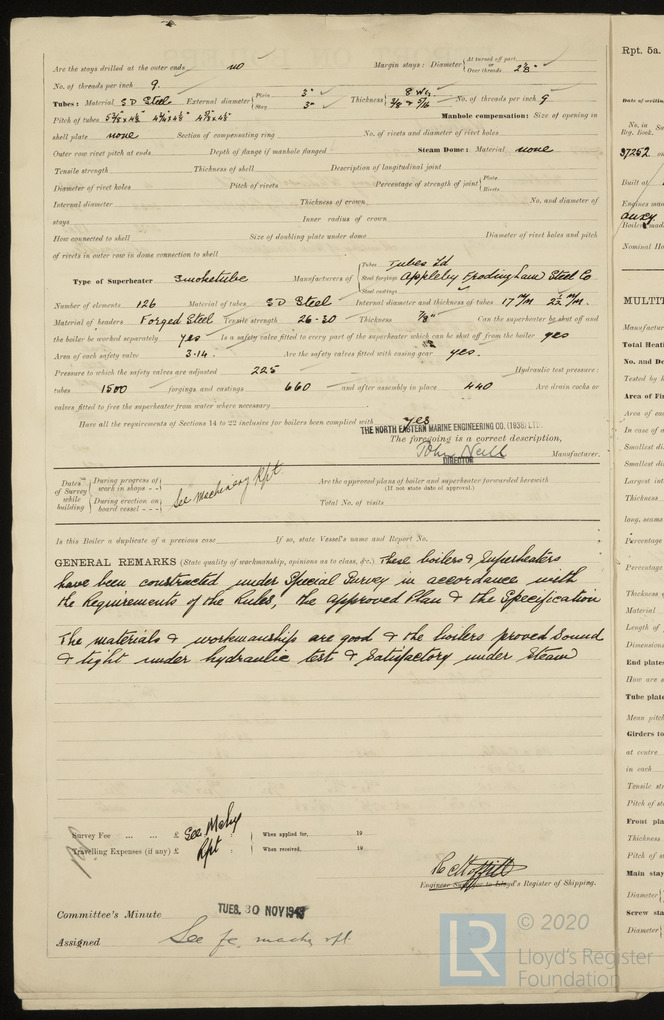 Are the stays drilled at the outer ends no Margin stays: Diameter { At turned off part, or Over threads 2⅜"
No. of threads per inch 9.
Tubes: Material S D Steel External diameter { Plain 3" Stay 3" Thickness { 8 WG. No. of threads per inch 9
Pitch of tubes Manhole compensation: Size of opening in
shell plate none Section of compensating ring No. of rivets and diameter of rivet holes
Outer row rivet pitch at ends Depth of flange if manhole flanged Steam Dome: Material none
Tensile strength Thickness of shell Description of longitudinal joint
Diameter of rivet holes Pitch of rivets Percentage of strength of joint { Plate Rivets
Internal diameter Thickness of crown No. and diameter of
stays Inner radius of crown
How connected to shell Size of doubling plate under dome Diameter of rivet holes and pitch
of rivets in outer row in dome connection to shell
Type of Superheater Smoketube Manufacturers of { Tubes Tubes Ld Steel forgings Appleby Frodingham Steel Co Steel castings
Number of elements 126 Material of tubes S D Steel Internal diameter and thickness of tubes 17 m/m 2½ m/m.
Material of headers Forged Steel Tensile strength 26-30 Thickness ⅞" Can the superheater be shut off and
the boiler be worked separately yes Is a safety valve fitted to every part of the superheater which can be shut off from the boiler yes
Area of each safety valve 3.14. Are the safety valves fitted with easing gear yes.
Pressure to which the safety valves are adjusted 225 Hydraulic test pressure:
tubes 1500 forgings and castings 660 and after assembly in place 440 Are drain cocks or
valves fitted to free the superheater from water where necessary
Have all the requirements of Sections 14 to 22 inclusive for boilers been complied with yes
THE NORTH EASTERN MARINE ENGINEERING CO. (1938) LTD.
The foregoing is a correct description,
John Neill Manufacturer.
DIRECTOR
Dates of Survey while building { During progress of work in shops - - During erection on board vessel - - - See Machinery Rpt
Are the approved plans of boiler and superheater forwarded herewith
(If not state date of approval.)
Total No. of visits
Is this Boiler a duplicate of a previous case If so, state Vessel's name and Report No.
GENERAL REMARKS (State quality of workmanship, opinions as to class, &c.) These boilers & Superheaters
have been constructed under Special Survey in accordance with
the Requirements of the Rules, the approved Plan & the Specification
The materials & workmanship are good & the boilers proved sound
& tight under hydraulic test & satisfactory under steam
Survey Fee ... ... £ See Mchy : : When applied for, 19
Travelling Expenses (if any) £ Rpt : : When received, 19
Engineer Surveyor to Lloyd's Register of Shipping.
Committee's Minute TUES. 30 NOV 1943
Assigned See machy rpt.
LR © 2020
Lloyd's Register
Foundation
Rpt. 5a.
Date of writing
No. in
Reg. Book.
37252
Built at
Engines mad
Boilers mad
Nominal Ho
MULTIT
Manufactur
Total Heati
No. and De
Tested by h
Area of Fi
Area of ea
In case of a
Smallest di
Smallest di
Largest int
Thickness
long. seams
Percentage
Percentage
Thickness o
Material
Length of
Dimensions
End plates
How are s
Tube plate
Mean pitch
Girders to
at centre
in each
Tensile str
Pitch of st
Front plat
Thickness
Pitch of s
Main stay
Diameter {
Screw sta
Diameter {